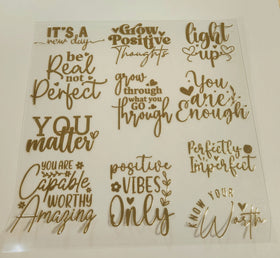 IT'S A
new day
Grow
Positive
Thoughts
light
up
be
Real
not
Perfect
grow
through
what you
GO
Through
You
are
Enough
YOU
matter
Perfectly
Imperfect
YOU ARE
Capable
WORTHY
Amazing
positive
VIBES
Only
KNOW YOUR
Worth